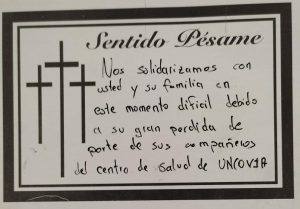 Sentido Pésame
Nos solidarizamos con
usted y su familia en
este momento dificil debido
a su gran perdida de
parte de sus compañeros
del centro de Salud de UNCOVIA